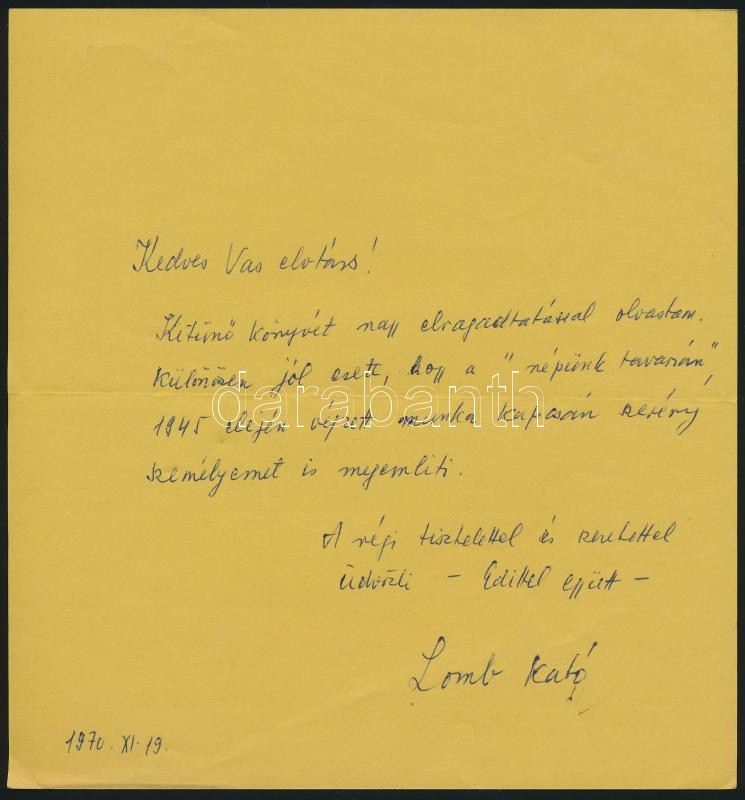 Kedves Vas elvtárs!
Kitünő könyvét nagy elragadtatással olvastam.
Különösen jól esett, hogy a "népünk tavaszán",
1945 elején végzett munka kapcsán szerény
személyemet is megemlíti.
A régi tisztelettel és szeretettel
üdvözli – Edittel együtt –
Lomb Kató
1970. XI. 19.
darabanth